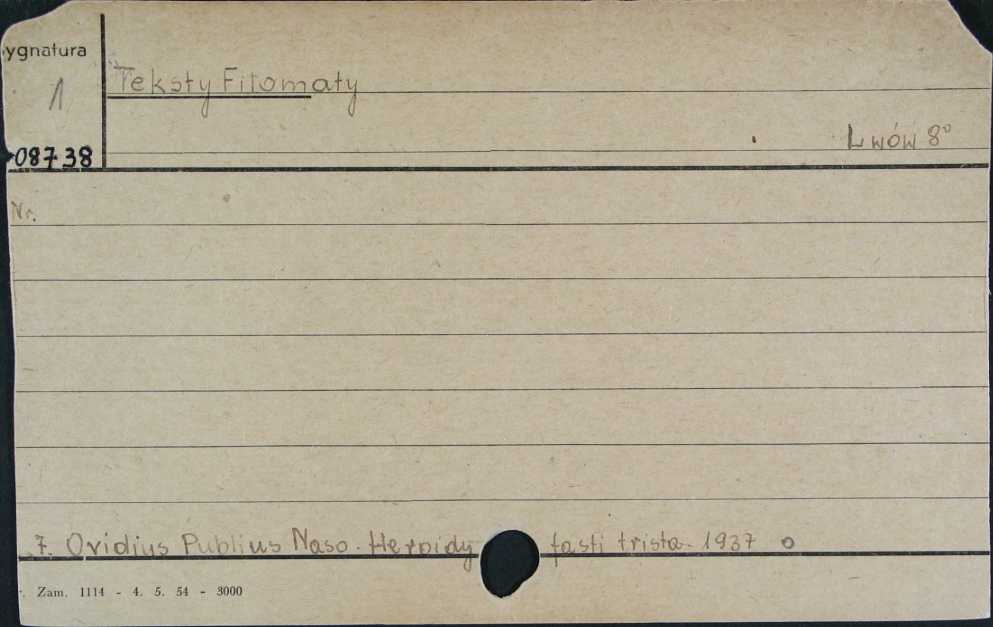 ygnatura
1
08738
Teksty Filomaty
Lwów 8°
Nr.
7. Ovidius Publius Naso. Heroidy fasti trista. 1937 o
Zam. 1114 - 4. 5. 54 - 3000